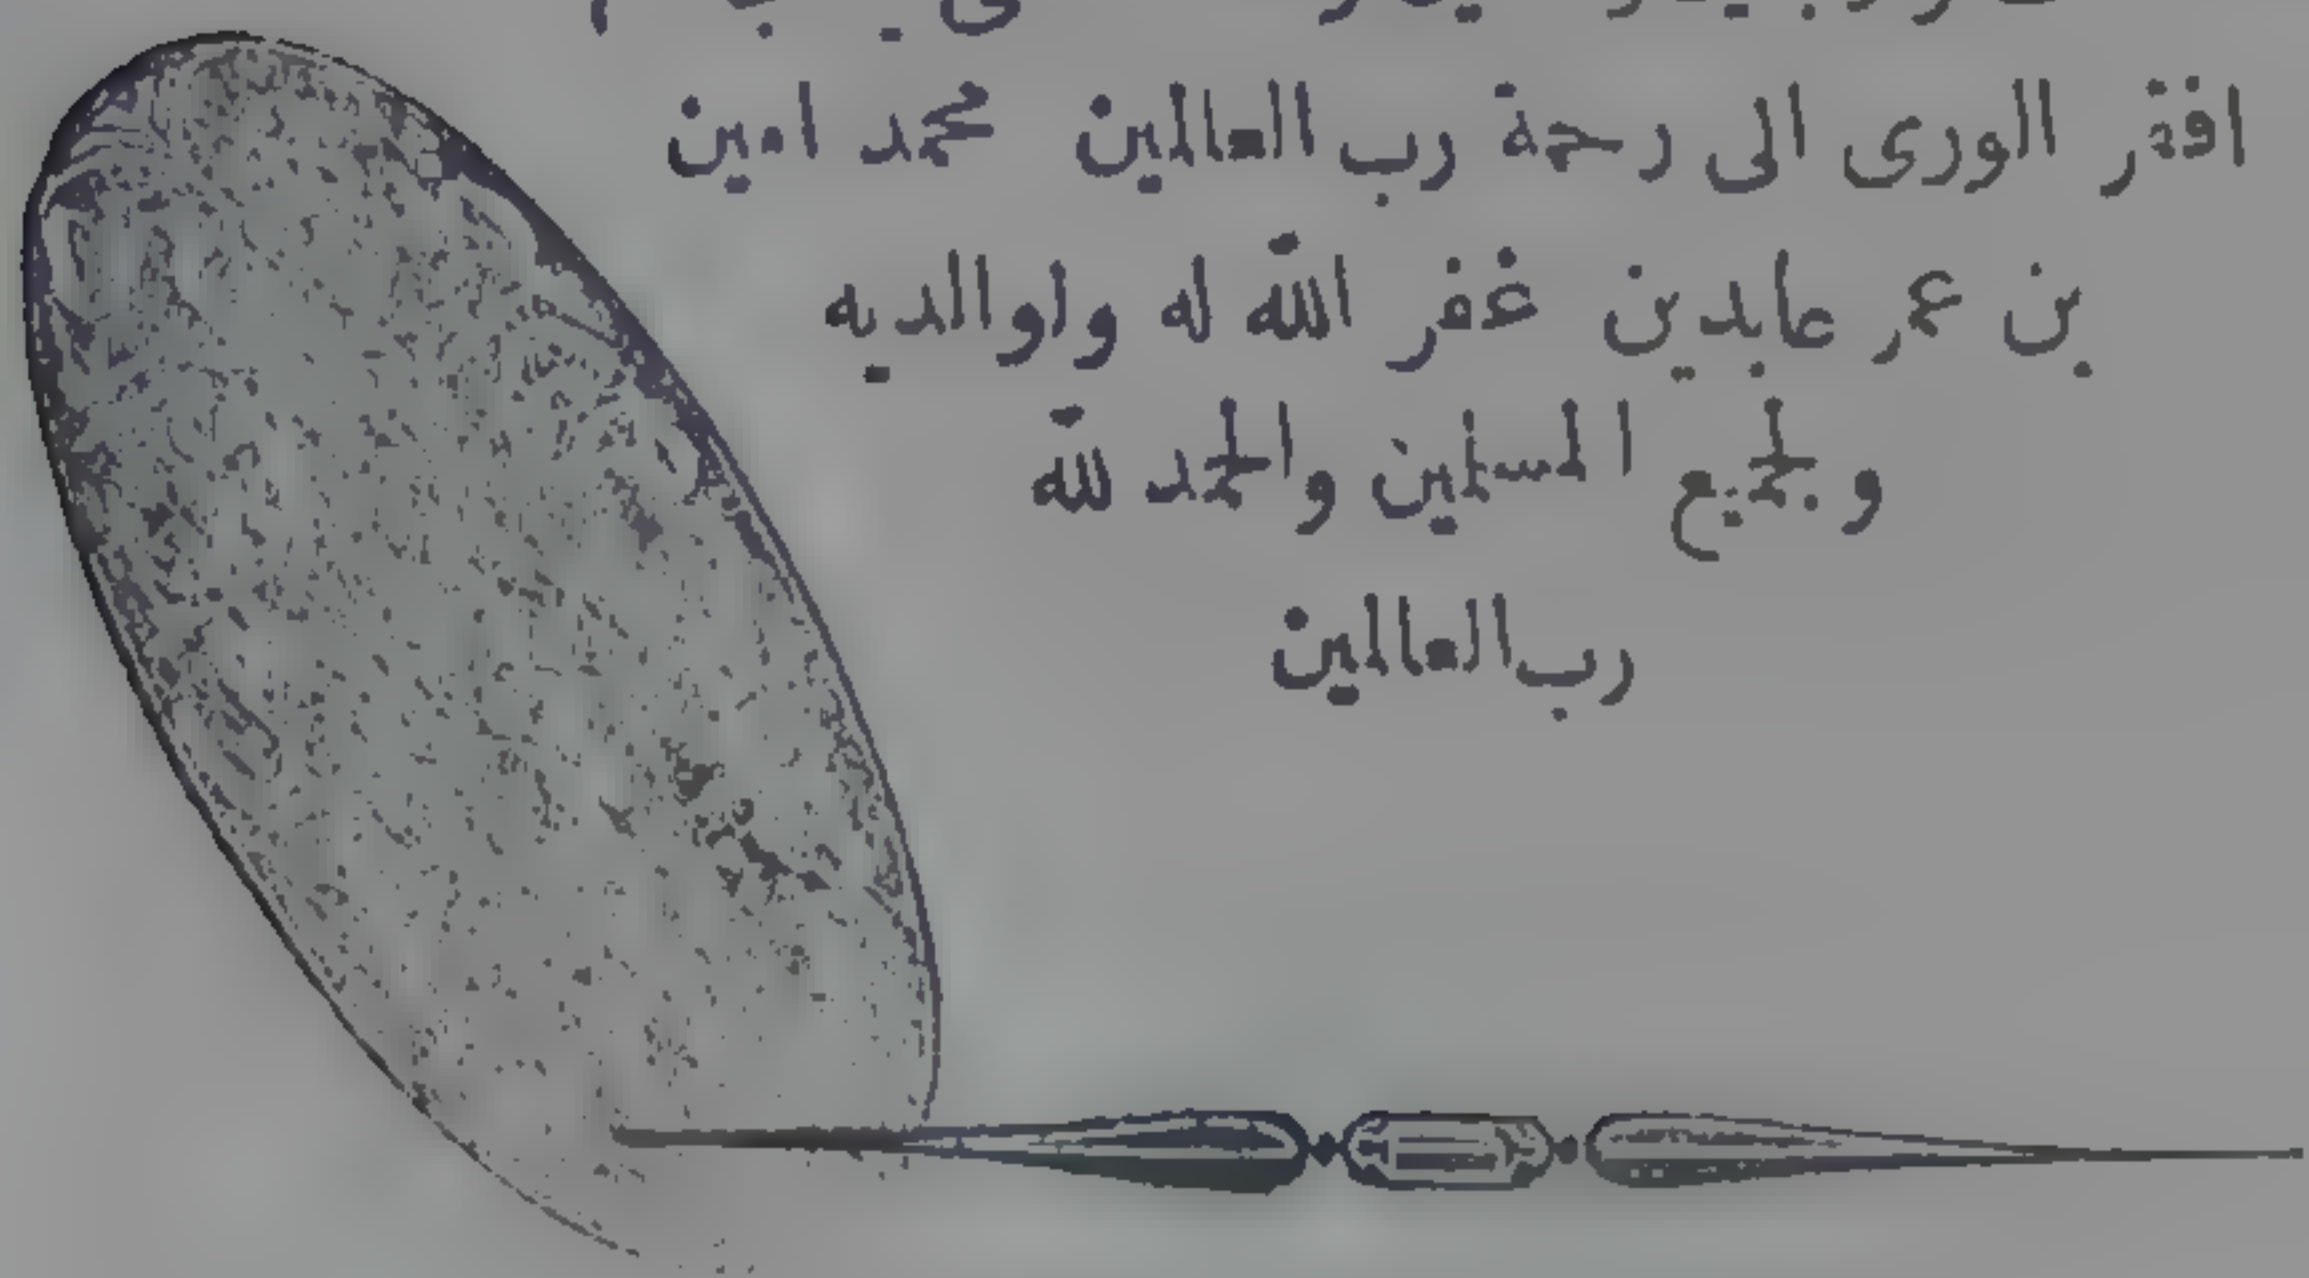 افقر الورى الى رحمة رب العالمين محمد امين
بن عمر عابدين غفر الله له ولوالديه
ولجميع المسلمين والحمد لله
رب العالمين